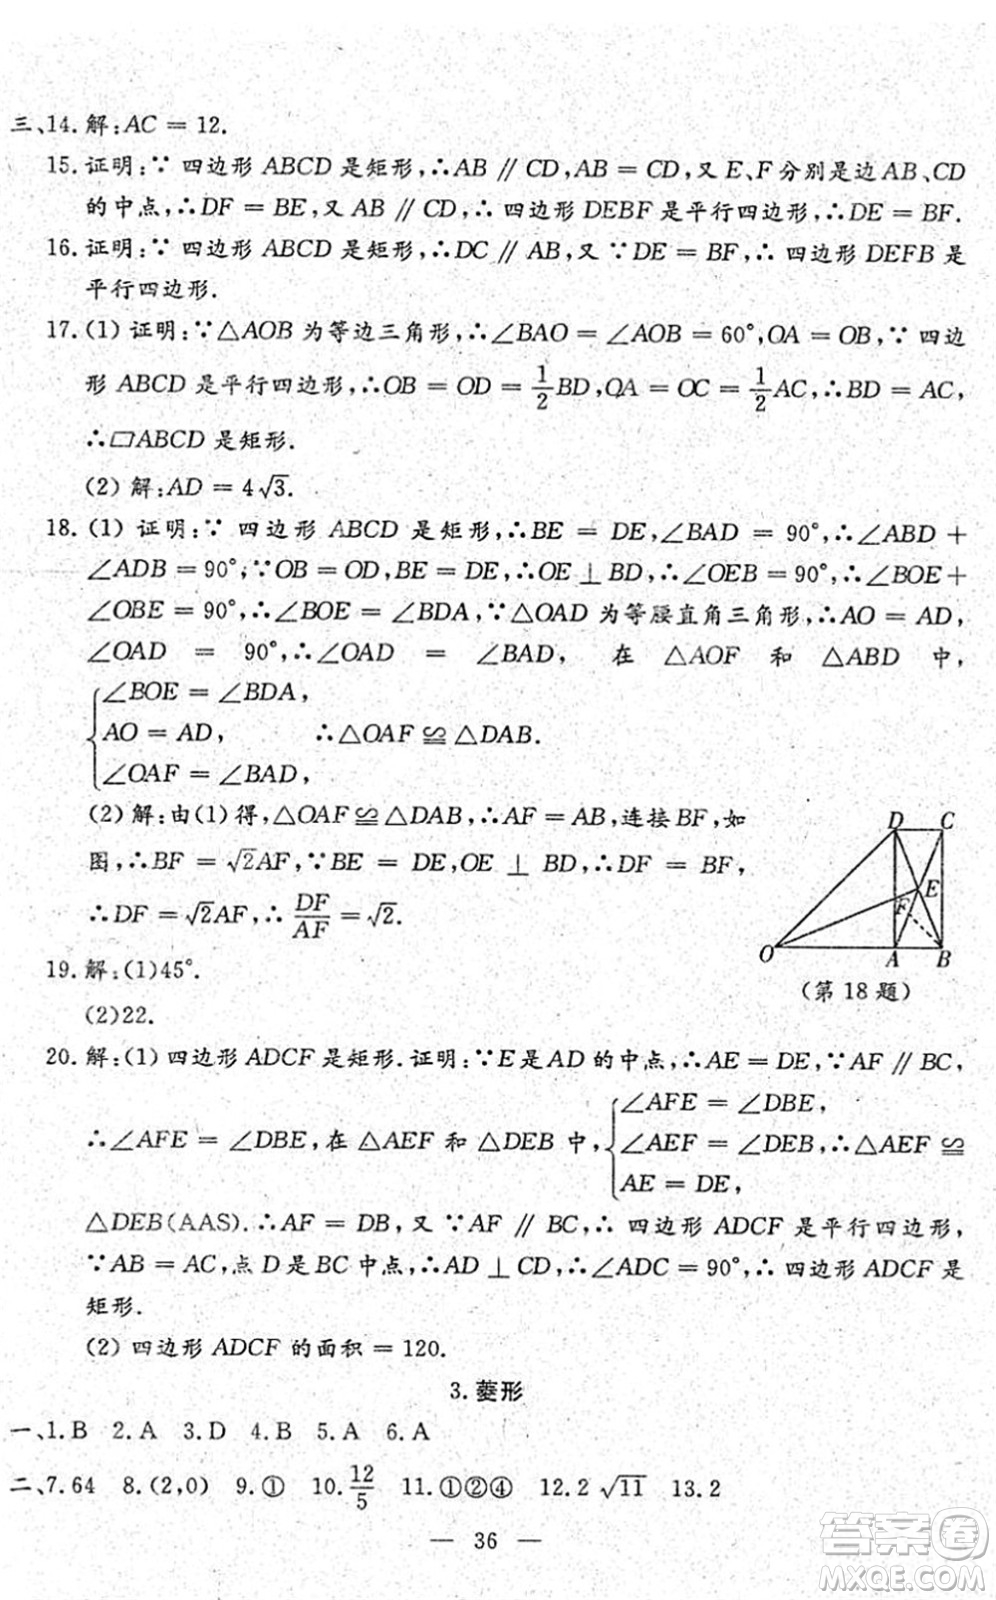 三、14. 解:AC = 12.
15. 证明:∵ 四边形 ABCD 是矩形,∴AB ∥ CD,AB = CD,又 E、F 分别是边 AB、CD
的中点,∴DF = BE,又 AB ∥ CD,∴ 四边形 DEBF 是平行四边形,∴DE = BF.
16. 证明:∵ 四边形 ABCD 是矩形,∴DC ∥ AB,又 ∵DE = BF,∴ 四边形 DEFB 是
平行四边形.
17. (1) 证明:∵△AOB 为等边三角形,∴∠BAO = ∠AOB = 60°,OA = OB,∵ 四边
形 ABCD 是平行四边形,∴OB = OD = 1/2 BD,OA = OC = 1/2 AC,∴BD = AC,
∴▱ABCD 是矩形.
(2) 解:AD = 4√3.
18. (1) 证明:∵ 四边形 ABCD 是矩形,∴BE = DE,∠BAD = 90°,∴∠ABD +
∠ADB = 90°,∵OB = OD,BE = DE,∴OE ⊥ BD,∴∠OEB = 90°,∴∠BOE +
∠OBE = 90°,∴∠BOE = ∠BDA,∵△OAD 为等腰直角三角形,∴AO = AD,
∠OAD = 90°,∴∠OAD = ∠BAD, 在 △AOF 和 △ABD 中,
∠BOE = ∠BDA,
AO = AD, ∴△OAF ≌ △DAB.
∠OAF = ∠BAD,
(2) 解:由(1)得,△OAF ≌ △DAB,∴AF = AB,连接 BF,如
图,∴BF = √2AF,∵BE = DE,OE ⊥ BD,∴DF = BF,
∴DF = √2AF,∴ DF/AF = √2.
D C
E
F
O A B
(第 18 题)
19. 解:(1)45°.
(2)22.
20. 解:(1) 四边形 ADCF 是矩形.证明:∵E 是 AD 的中点,∴AE = DE,∵AF ∥ BC,
∠AFE = ∠DBE,
∴∠AFE = ∠DBE,在 △AEF 和 △DEB 中, ∠AEF = ∠DEB,∴△AEF ≌
AE = DE,
△DEB(AAS).∴AF = DB,又 ∵AF ∥ BC,∴ 四边形 ADCF 是平行四边形,
∵AB = AC,点 D 是 BC 中点,∴AD ⊥ CD,∴∠ADC = 90°,∴ 四边形 ADCF 是
矩形.
(2) 四边形 ADCF 的面积 = 120.
3. 菱形
一、1. B 2. A 3. D 4. B 5. A 6. A
二、7. 64 8. (2,0) 9. ① 10. 12/5 11. ①②④ 12. 2√11 13. 2
— 36 —
答案圈
MXQE.COM